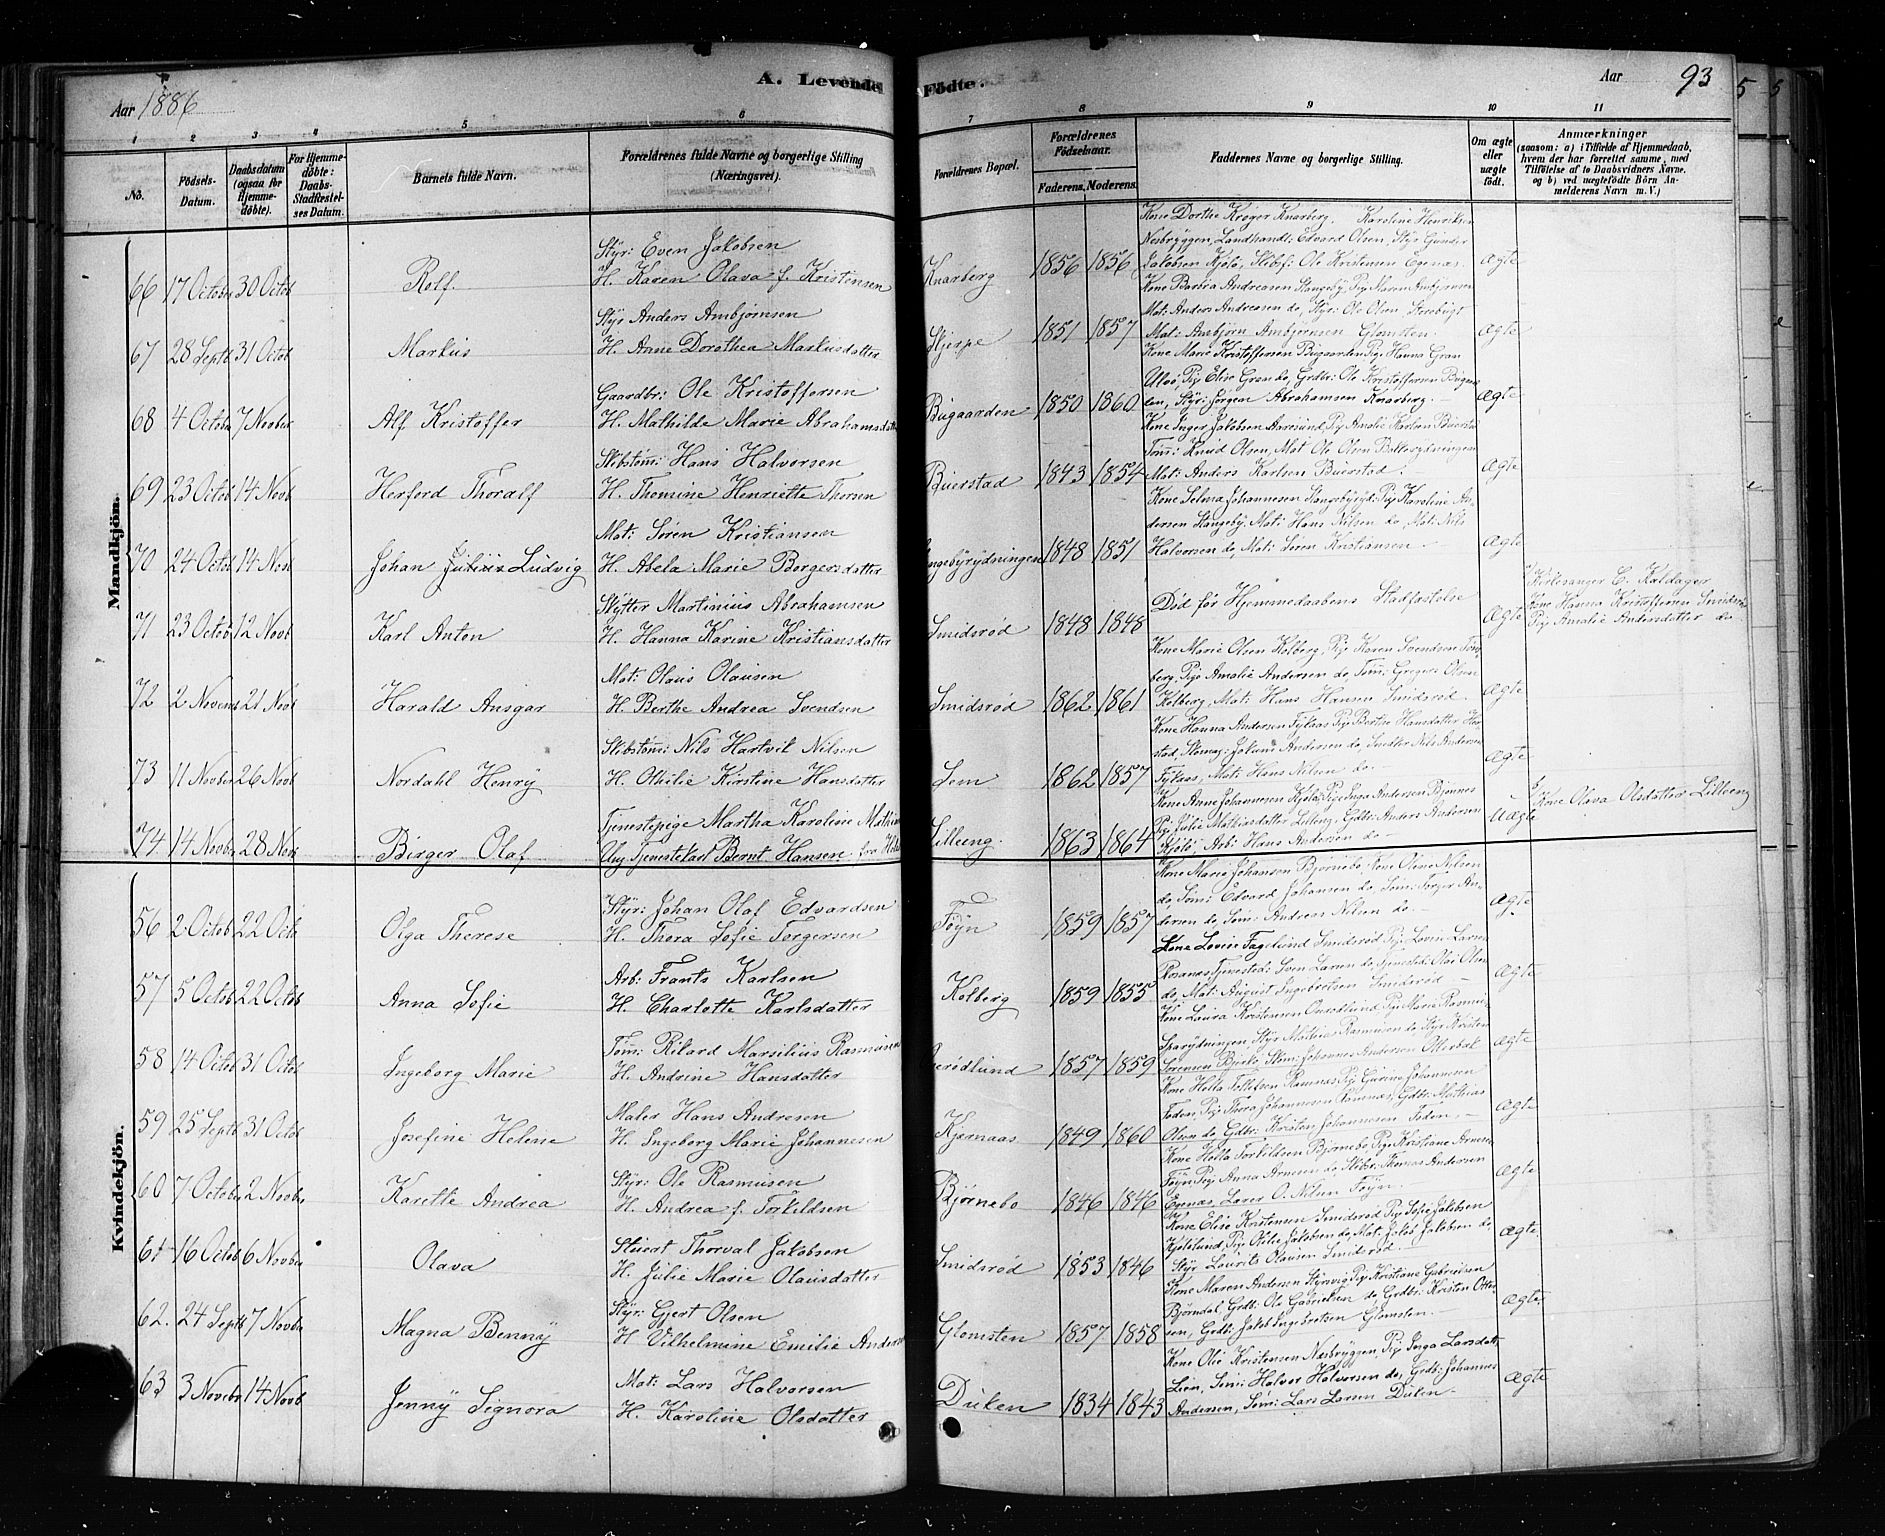 Aar 1886
A. Levende Födte.
Aar 93
1 2 3 4 5 6 7 8 9 10 11
No.
Födsels-Datum.
Daabsdatum (ogsaa for Hjemmedöbte).
For Hjemmedöbte: Daabs-Stadfæstelses Datum.
Barnets fulde Navn.
Forældrenes fulde Navne og borgerlige Stilling (Næringsvei).
Forældrenes Bopæl.
Forældrenes Födselsaar.
Faderens. Moderens.
Faddernes Navne og borgerlige Stilling.
Om ægte eller uægte födt.
Anmærkninger
(saasom: a) i Tilfælde af Hjemmedaab, hvem der har forrettet samme, med Tilföielse af to Daabsvidners Navne, og b) ved uægtefödte Börn Anmelderens Navn m. V.)
Mandkjön.
66 17 Octobr 30 Octob Rolf.
Styr: Even Jakobsen
H. Karen Olava f. Kristensen
Knarberg 1856 1856
Kone Dorthe Krøger Knarberg, Karoline Henriksen
Nesbryggen, Landhandl: Edvard Olsen, Styr Gunder
Jakobsen Kjölö, Skibsf: Ole Kristensen Egenæs.
Ægte
67 28 Septb 31 Octob Markus
Styr Anders Ambjørnsen
H. Anne Dorothea Markusdatter
1851 1857
Kone Barbra Andreasen Stangeby, Pige Maren Ambjørnsen
Mat: Anders Andreasen do, Styr: Ole Olsen
Mat: Ambjørn Ambjørnsen Glomsten.
Ægte
68 4 Octobr 7 Novbr Alf Kristoffer
Gaardbr: Ole Kristoffersen
H. Mathilde Marie Abrahamsdatter
Bugaarden 1850 1860
Kone Marie Kristoffersen Bugaarden, Pige Hanna Gran
Pige Elise Gran do, Grdbr: Ole Kristoffersen Bugaar-
den, Styr: Jørgen Abrahamsen Knarberg.
Ægte
69 23 Octob 14 Novb Herford Thoralf
Skibstøm: Hans Halvorsen
H. Thomine Henriette Thorsen
Buerstad 1843 1854
Kone Inger Jakobsen Aaresund, Pig Amalie Karlsen Buerstad
Tøm: Knud Olsen, Mat Ole Olsen
Mat: Anders Karlsen Buerstad.
Ægte
70 24 Octob 14 Novb Johan Julius Ludvig
Mat: Søren Kristiansen
H. Abela Marie Borgersdatter
1848 1851
Kone Selma Johannesen Stangebyryd: Pig Karoline An-
dersen Stangeby, Mat: Hans Nilsen do, Mat: Nils
Halvorsen do, Mat: Søren Kristiansen
Ægte
71 23 Octob 12 Novb Karl Anton
Skytter Martinius Abrahamsen
H. Hanna Karine Kristiansdatter
Smidsrød 1848 1848
Død før Hjemmedaabens Stadfæstelse
Ægte
Kirkesanger C. Kaldager
Kone Hanna Kristoffersen Smidsrød
Pige Amalie Andersdatter do
72 2 Novemb 21 Nov Harald Ansgar
Mat: Olaus Olausen
H. Berthe Andrea Svendsen
Smidsrød 1862 1861
Kone Marie Olsen Kolberg, Pig Karen Svendsen
berg, Pige Amalie Andersen do Tøm: Gregers Olsen
Kolberg, Mat: Hans Hansen Smidsrød.
Ægte
73 11 Novber 26 Novb Nordahl Henry
Skibstøm: Nils Hartvik Nilsen
H. Othilie Kirstine Hansdatter
Sem 1862 1857
Kone Hanna Andersen Pig Berthe Hansdatter
stad, Skomag: Johan Andersen do, Nils Andersen
Mat: Hans Nilsen do
Ægte
74 14 Novbr 28 Nov Birger Olaf
Tjenestepige Martha Karoline
Ung Tjenestekarl Bernt Hansen fra
Lilleeng. 1863 1864
Kone Anne Johannesen Kjölö, Pige Inga Andersen Bjønnes
Pig Julie Mathiasdatter Lilleeng, Grdbr: Anders Andersen
Kjölö, Arb: Hans Andersen do
Uægte
Kone Olava Olsdatter Lilleeng
Kvindekjön.
56 2 Octob 22 Octo Olga Therese
Styr: Johan Olaf Edvardsen
H. Thora Sofie Torgersen
Føyn 1859 1857
Kone Marie Johansen Bjørnebo, Kone Oline Nilsen
do, Søm: Edvard Johansen do, Søm: Torger An-
dersen do, Søm: Andreas Nilsen do
Ægte
57 5 Octob 22 Octob Anna Sofie
Arb: Frants Karlsen
H. Charlotte Karlsdatter
Kolberg 1859 1855
Kone Lovise Fagelund Smidsrød, Pige Lovise Larsen
Rosanes, Tjenested: Sven Larsen do, Tjenestek: Olai Olsen
do, Mat: August Ingebretsen Smidsrød
Ægte
58 14 Octob 31 Octob Ingeborg Marie
Tøm: Rikard Marsilius Rasmussen
H. Andrine Hansdatter
1857 1859
Kone Laura Kristensen Pig: Marie Rasmus-
Styr Mathias Rasmussen do, Styr Kristen
Sørensen Johannes Andersen Otterbæk
Ægte
59 25 Septb 31 Octob Josefine Helene
Maler Hans Andresen
H. Ingeborg Marie Johannesen
Kjernaas 1849 1860
Kone Hella Tollefsen Ramnæs, Pig Gurine Johannesen
Foden, Pig: Thora Johannesen Ramnæs, Grdbr: Mathias
Olsen do, Grdbr: Kristen Johannesen Foden.
Ægte
60 7 Octobr 2 Novbr Karette Andrea
Styr: Ole Rasmusen
H. Andrea f. Torkildsen
Bjørnebo 1846 1846
Kone Helta Torkildsen Bjørnebo, Pige Kristiane Arnesen
Føyn, Pige Anna Arnesen do, Skibr: Thomas Andersen
Egenæs, Lærer O. Nilsen Føyn.
Ægte
61 16 Octob 6 Novber Olava
Stuert Thorval Jakobsen
H. Julie Marie Olausdatter
Smidsrød 1853 1846
Kone Elise Kristensen Smidsrød, Pig Sofie Jakobsen
Kjölölund, Pige Othilie Jakobsen do, Mat: Jakob Jakobsen do
Styr Laurits Olausen Smidsrød.
Ægte.
62. 24 Septb 7 Novbr Magna Benny
Styr: Gjert Olsen
H. Vilhelmine Emilie Anders
Glomsten 1857 1858
Kone Maren Andersen Pig Kristiane Gabrielsen
Bjørndal, Grdb: Ole Gabrielsen do, Grdbr: Kristen Otter-
sen, Grdb: Jakob Ingebretsen Glomsten.
Ægte.
63 3 Novbr 14 Novb Jenny Signora
Mat: Lars Halvorsen
H. Karoline Olsdatter
Duken 1834 1843
Kone Olie Kristensen Næsbryggen, Pig Inga Larsdatt
Lien, Søm: Halvor Halvorsen do, Grdb: Johannes
Andersen, Søm: Lars Larsen Duken.
Ægte